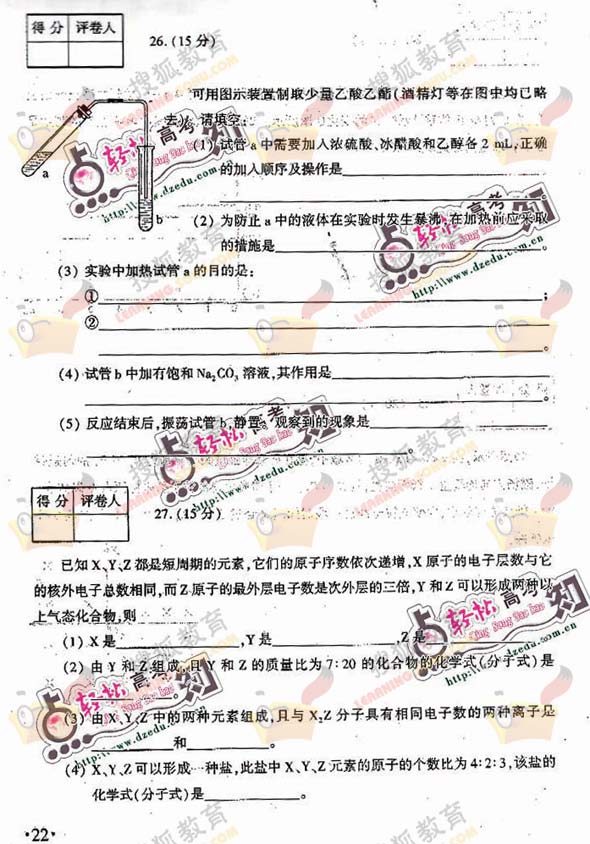 得分 评卷人
26.(15分)
可用图示装置制取少量乙酸乙酯(酒精灯等在图中均已略
去)。请填空:
(1)试管a中需要加入浓硫酸、冰醋酸和乙醇各2 mL,正确
的加入顺序及操作是
a
b
(2)为防止a中的液体在实验时发生暴沸,在加热前应采取
的措施是
(3)实验中加热试管a的目的是:
①;
②。
(4)试管b中加有饱和Na₂CO₃溶液,其作用是
。
(5)反应结束后,振荡试管b,静置。观察到的现象是
。
得分 评卷人
27.(15分)
已知X、Y、Z都是短周期的元素,它们的原子序数依次递增,X原子的电子层数与它
的核外电子总数相同,而Z原子的最外层电子数是次外层的三倍,Y和Z可以形成两种以
上气态化合物,则
(1)X是,Y是,Z是
(2)由Y和Z组成,且Y和Z的质量比为7:20的化合物的化学式(分子式)是
。
(3)由X、Y、Z中的两种元素组成,且与X₂Z分子具有相同电子数的两种离子是
和。
(4)X、Y、Z可以形成一种盐,此盐中X、Y、Z元素的原子的个数比为4:2:3,该盐的
化学式(分子式)是。
·22·
搜狐教育
LEARNING.SOHU.COM
轻松高考
Qing Song Gao kao
http://www.dzedu.com.cn